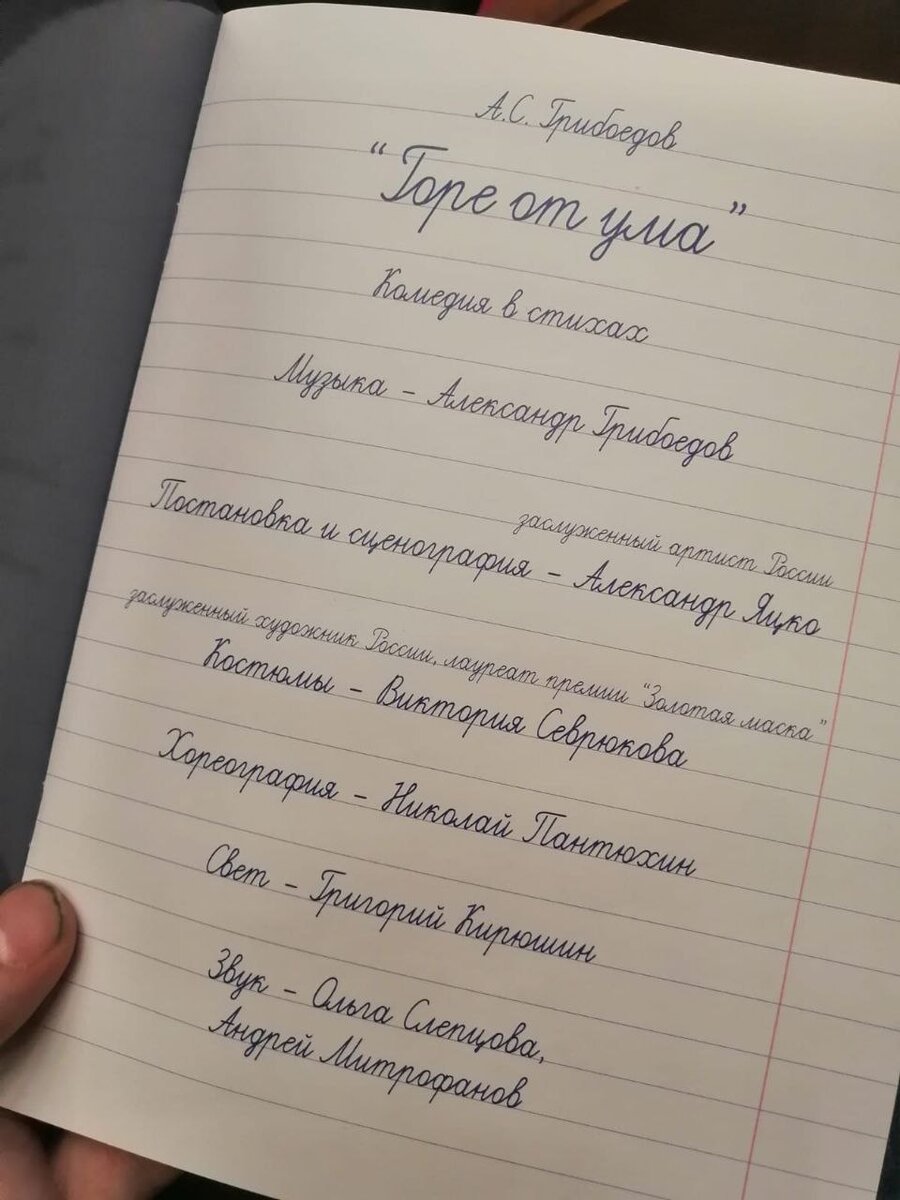 А.С. Грибоедов
"Горе от ума"
Комедия в стихах
Музыка – Александр Грибоедов
заслуженный артист России
Постановка и сценография – Александр Яцко
заслуженный художник России, лауреат премии "Золотая маска"
Костюмы – Виктория Севрюкова
Хореография – Николай Пантюхин
Свет – Григорий Кирюшин
Звук – Ольга Слепцова,
Андрей Митрофанов